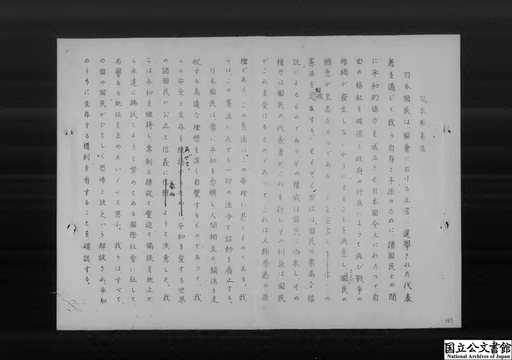 日本國憲法
日本國民は、國會における正當に選擧された代表
者を通じて、我ら自身と子孫のために、諸國民との間
に平和的協力を成立させ、日本國全土にわたつて自
由の福祉を確保し、政府の行爲によつて再び戰爭の
惨禍が發生しないやうにすることを決意し、國民の
總意が至高なものであることを宣言し、の
憲法を定確する。そもそも國政は、國民の崇高な信
託によるものであり、その權威は國民に由來し、その
權力は國民の代表者がこれを行ひ、その利益は國民
がこれを受けるものであつて、これは人類普遍の原
理であり、この憲法は、この原理に基くものである。我
らは、この憲法に反する一切の法令と詔勅を廢止する。
日本國民は、常に平和を念願し、人間相互の關係を支
配する高遠な理想を深く自覺するものであつて、我
らの安全と生存をあげて、平和を愛する世界
の諸國民の公正と信義に委ねようと決意した。我
らは、平和を維持し、專制と隷從と壓迫と偏狹を地上か
ら永遠に拂拭しようと努めてゐる國際社會に伍して、
名譽ある地位を占めたいものと思ふ。我らは、すべて
の國の國民が、ひとしく恐怖と缺乏から解放され、平和
のうちに生存する權利を有することを確認する。
国立公文書館
National Archives of Japan